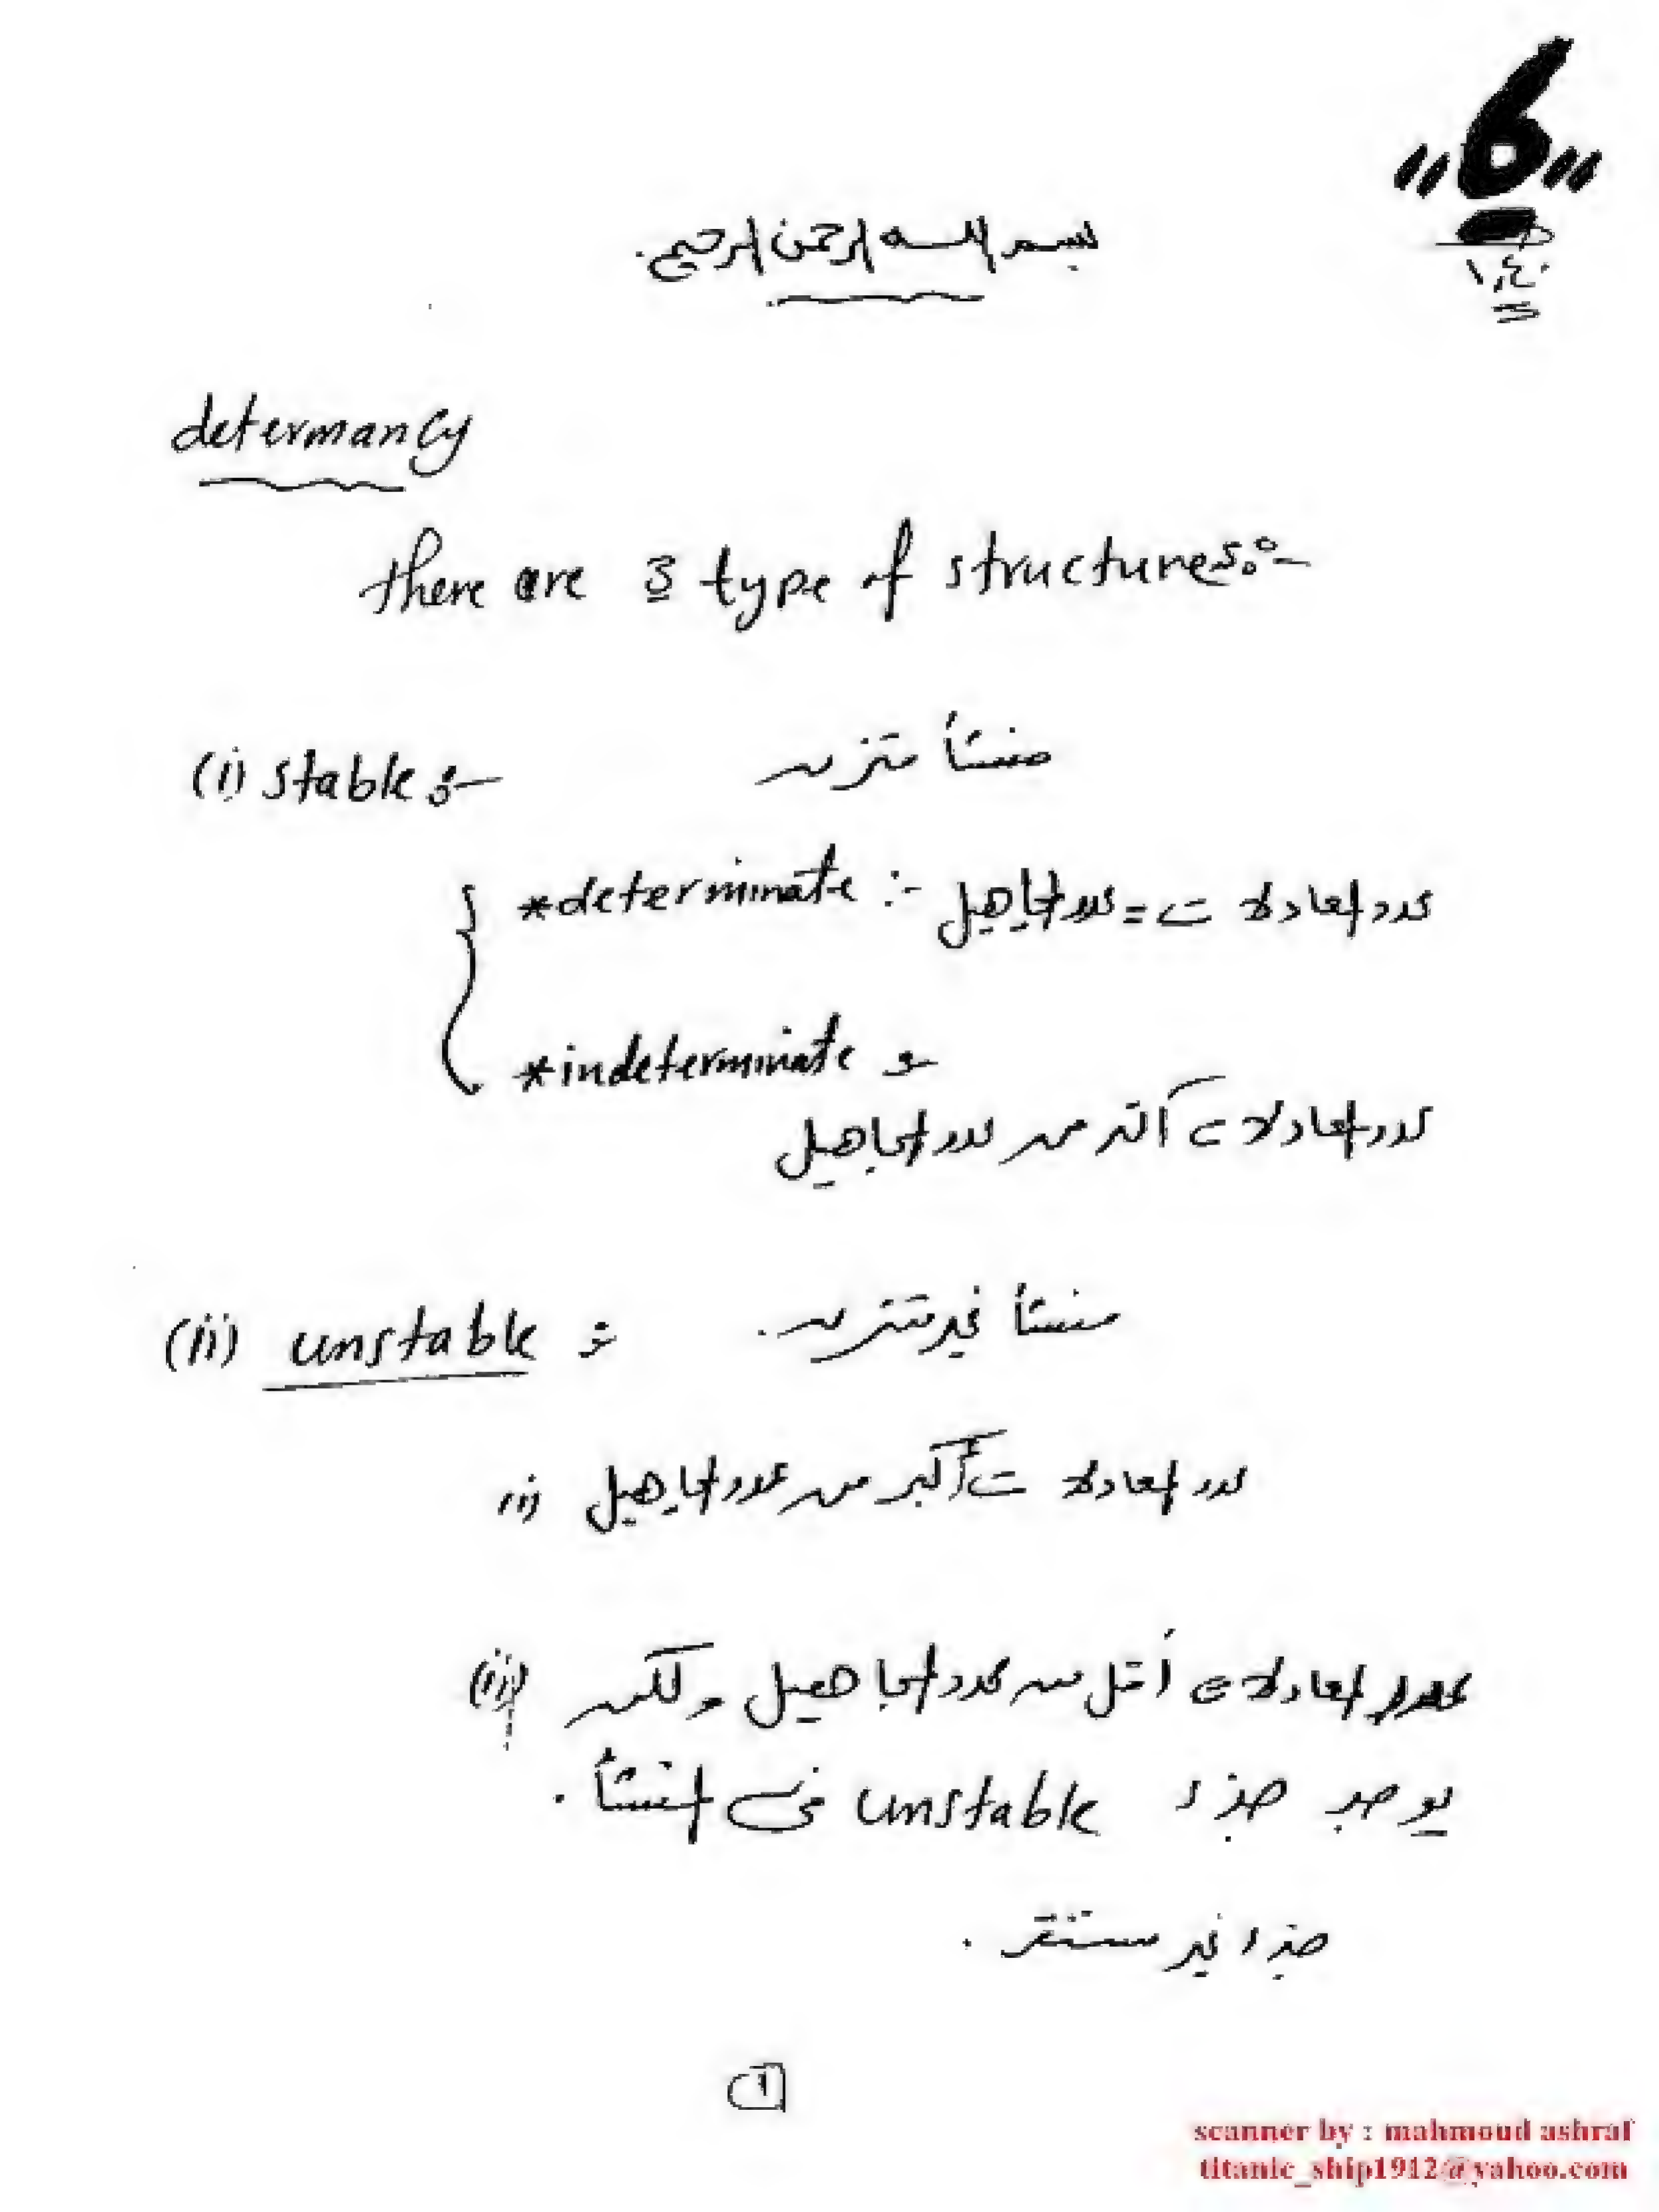 "6"
١,٤٠
بسم الله الرحمن الرحيم.
determancy
there are 3 type of structures:-
(i) stable :- منشأ متزن
*determinate :- عدد المعادلات = عدد المجاهيل
*indeterminate :-
عدد المعادلات أكثر من عدد المجاهيل
(ii) unstable :- منشأ غير متزن.
(i) عدد المعادلات أكبر من عدد المجاهيل
(ii) عدد المعادلات أقل من عدد المجاهيل ولكن
يوجد جزء unstable فى المنشأ.
جزء غير مستقر.
1
scanner by : mahmoud ashraf
titanic_ship1912@yahoo.com